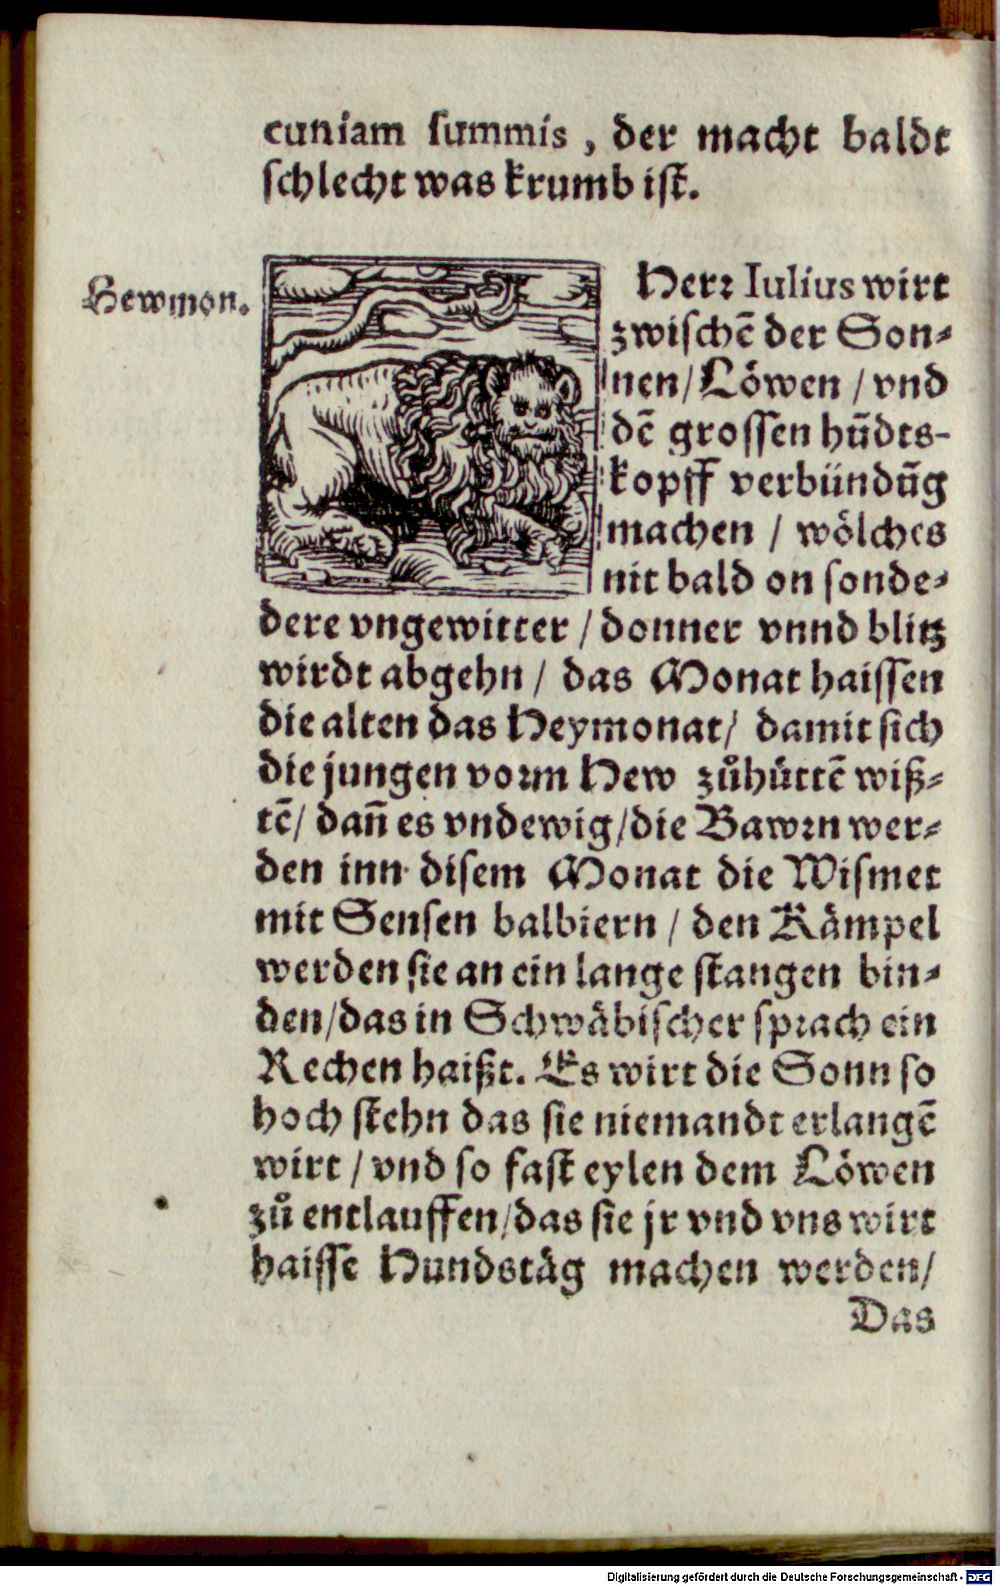 cuniam summis, der macht baldt
schlecht was krumb ist.
Hewmon.
Herꝛ Iulius wirt
zwischē der Son⸗
nen/ Löwen / vnd
dē grossen hūdts-
kopff verbündūg
machen / wölches
nit bald on sonde⸗
dere vngewitter / donner vnnd blitz
wirdt abgehn / das Monat haissen
die alten das Heymonat/ damit sich
die jungen voꝛm Hew zůhüttē wiß⸗
tē/ dañ es vndewig/die Bawꝛn wer⸗
den inn disem Monat die Wismet
mit Sensen balbiern / den Kämpel
werden sie an ein lange stangen bin⸗
den/das in Schwäbischer spꝛach ein
Rechen haißt. Es wirt die Sonn so
hoch stehn das sie niemandt erlangē
wirt / vnd so fast eylen dem Löwen
zů entlauffen/das sie jr vnd vns wirt
haisse Hundstäg machen werden/
Das
Digitalisierung gefördert durch die Deutsche Forschungsgemeinschaft - DFG